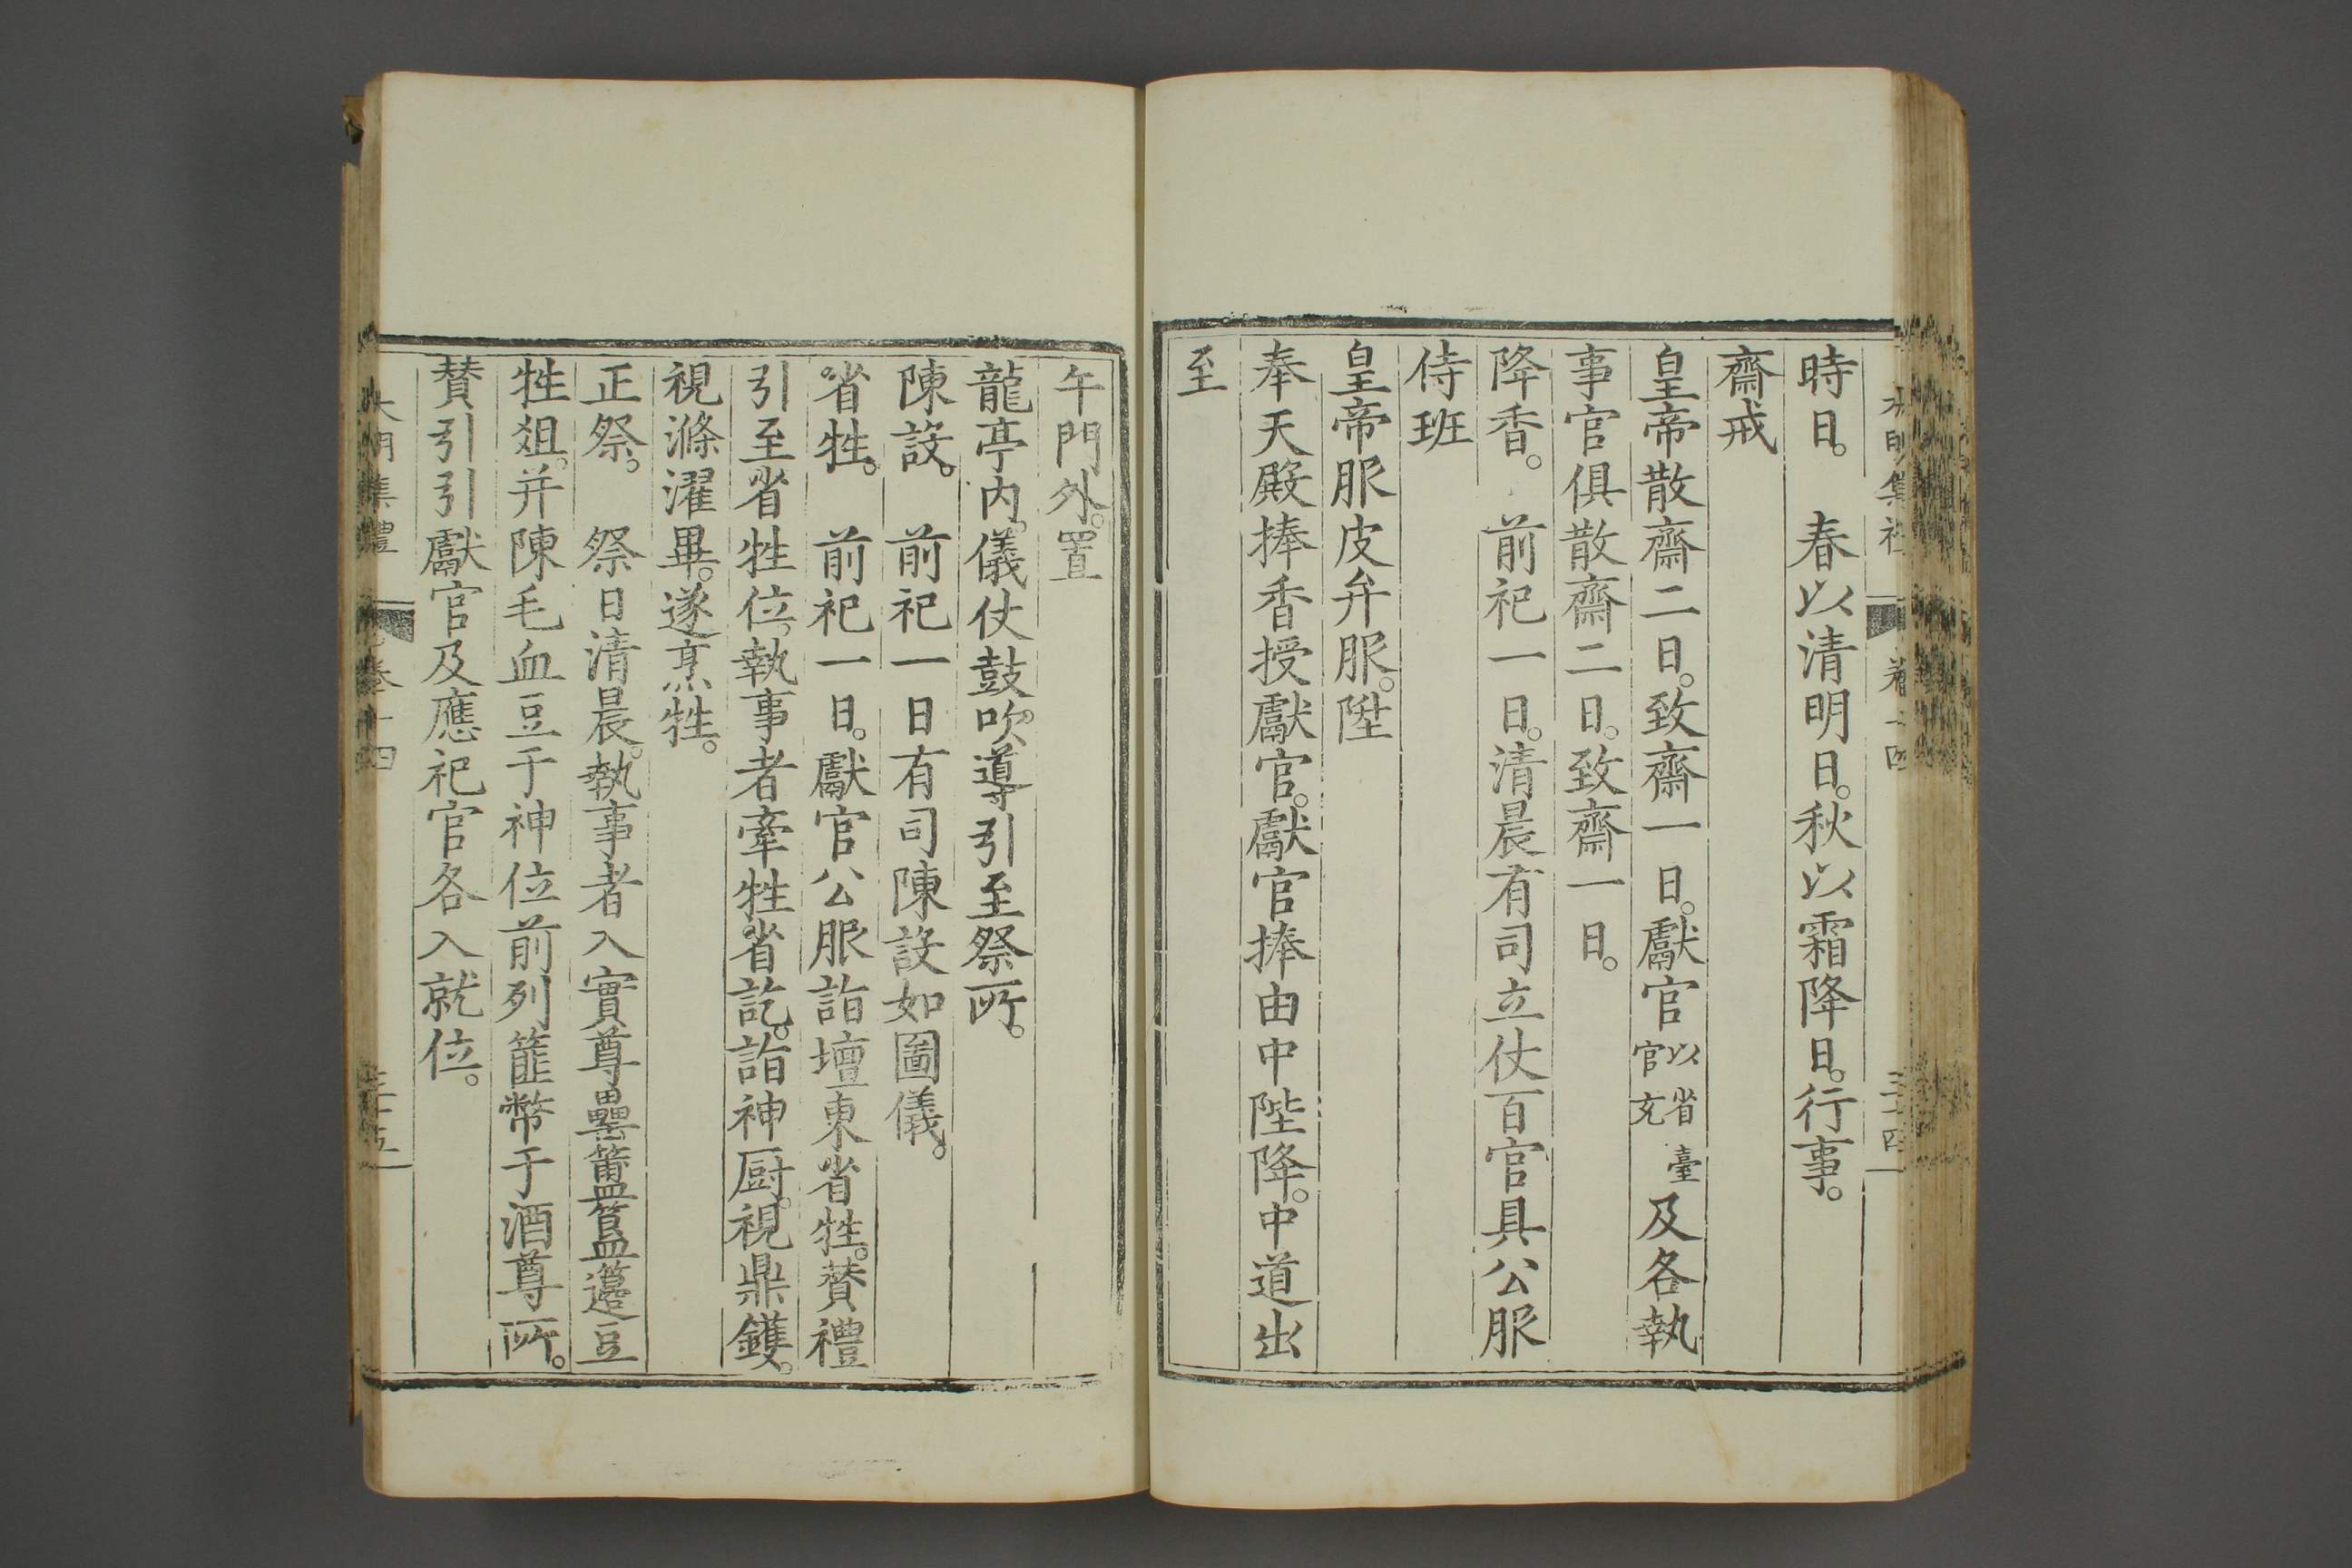 時日。　春以清明日。秋以霜降日。行事。
齋戒
皇帝散齋二日。致齋一日。獻官以省臺官充及各執
事官俱散齋二日。致齋一日。
降香。　前祀一日。清晨有司立仗百官具公服
侍班
皇帝服皮弁服。陞
奉天殿捧香授獻官。獻官捧由中陛降。中道出
至
午門外。置
龍亭内。儀仗鼓吹。導引至祭所。
陳設。　前祀一日有司陳設如圖儀。
省牲。　前祀一日。獻官公服詣壇東省牲。贊禮
引至省牲位。執事者牽牲。省訖。詣神厨。視鼎鑊。
視滌濯畢。遂烹牲。
正祭。　祭日清晨。執事者入實尊罍簠簋籩豆
牲俎。并陳毛血豆于神位前列篚幣于酒尊所。
贊引引獻官及應祀官各入就位。
大明集禮　卷十四　三十五